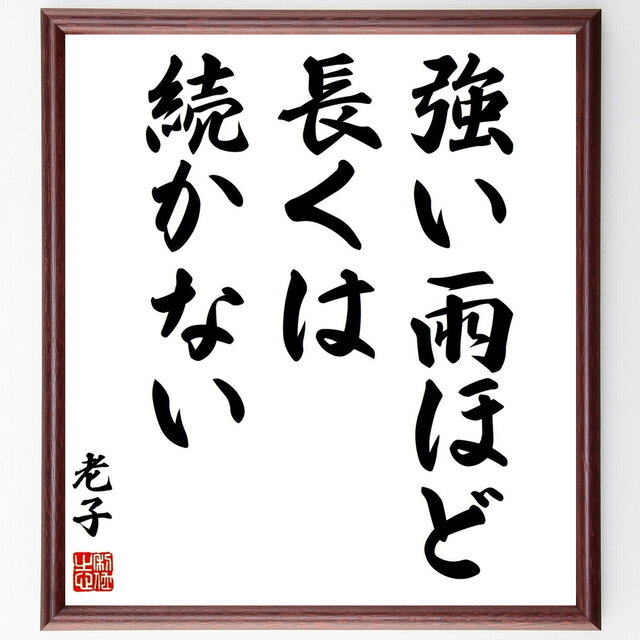 強い雨ほど
長くは
続かない
老子